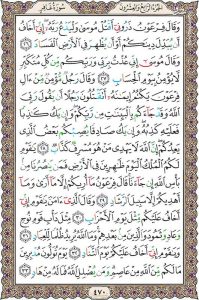 سُورَةُ غَافِرٍ
الجُزْءُ الرَّابِعُ وَالعِشْرُونَ
وَقَالَ فِرْعَوْنُ ذَرُونِىٓ أَقْتُلْ مُوسَىٰ وَلْيَدْعُ رَبَّهُۥٓ إِنِّىٓ أَخَافُ
أَن يُبَدِّلَ دِينَكُمْ أَوْ أَن يُظْهِرَ فِى ٱلْأَرْضِ ٱلْفَسَادَ ٢٦
وَقَالَ مُوسَىٰٓ إِنِّى عُذْتُ بِرَبِّى وَرَبِّكُم مِّن كُلِّ مُتَكَبِّرٍ
لَّا يُؤْمِنُ بِيَوْمِ ٱلْحِسَابِ ٢٧ وَقَالَ رَجُلٌ مُّؤْمِنٌ مِّنْ ءَالِ
فِرْعَوْنَ يَكْتُمُ إِيمَٰنَهُۥٓ أَتَقْتُلُونَ رَجُلًا أَن يَقُولَ رَبِّىَ ٱللَّهُ
وَقَدْ جَآءَكُم بِٱلْبَيِّنَٰتِ مِن رَّبِّكُمْ وَإِن يَكُ كَٰذِبًا
فَعَلَيْهِ كَذِبُهُۥ وَإِن يَكُ صَادِقًا يُصِبْكُم بَعْضُ ٱلَّذِى
يَعِدُكُمْ إِنَّ ٱللَّهَ لَا يَهْدِى مَنْ هُوَ مُسْرِفٌ كَذَّابٌ ٢٨ يَٰقَوْمِ
لَكُمُ ٱلْمُلْكُ ٱلْيَوْمَ ظَٰهِرِينَ فِى ٱلْأَرْضِ فَمَن يَنصُرُنَا مِنۢ
بَأْسِ ٱللَّهِ إِن جَآءَنَا قَالَ فِرْعَوْنُ مَآ أُرِيكُمْ إِلَّا مَآ أَرَىٰ وَمَآ
أَهْدِيكُمْ إِلَّا سَبِيلَ ٱلرَّشَادِ ٢٩ وَقَالَ ٱلَّذِىٓ ءَامَنَ يَٰقَوْمِ إِنِّىٓ
أَخَافُ عَلَيْكُم مِّثْلَ يَوْمِ ٱلْأَحْزَابِ ٣٠ مِثْلَ دَأْبِ قَوْمِ نُوحٍ
وَعَادٍ وَثَمُودَ وَٱلَّذِينَ مِنۢ بَعْدِهِمْ وَمَا ٱللَّهُ يُرِيدُ ظُلْمًا لِّلْعِبَادِ ٣١
وَيَٰقَوْمِ إِنِّىٓ أَخَافُ عَلَيْكُمْ يَوْمَ ٱلتَّنَادِ ٣٢ يَوْمَ تُوَلُّونَ مُدْبِرِينَ
مَا لَكُم مِّنَ ٱللَّهِ مِنْ عَاصِمٍ وَمَن يُضْلِلِ ٱللَّهُ فَمَا لَهُۥ مِنْ هَادٍ ٣٣
٤٧٠